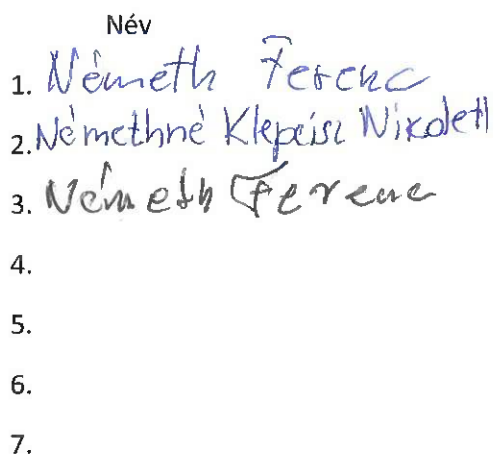 Név
1. Németh Ferenc
2. Némethné Klepeisz Nikolett
3. Németh Ferenc
4.
5.
6.
7.